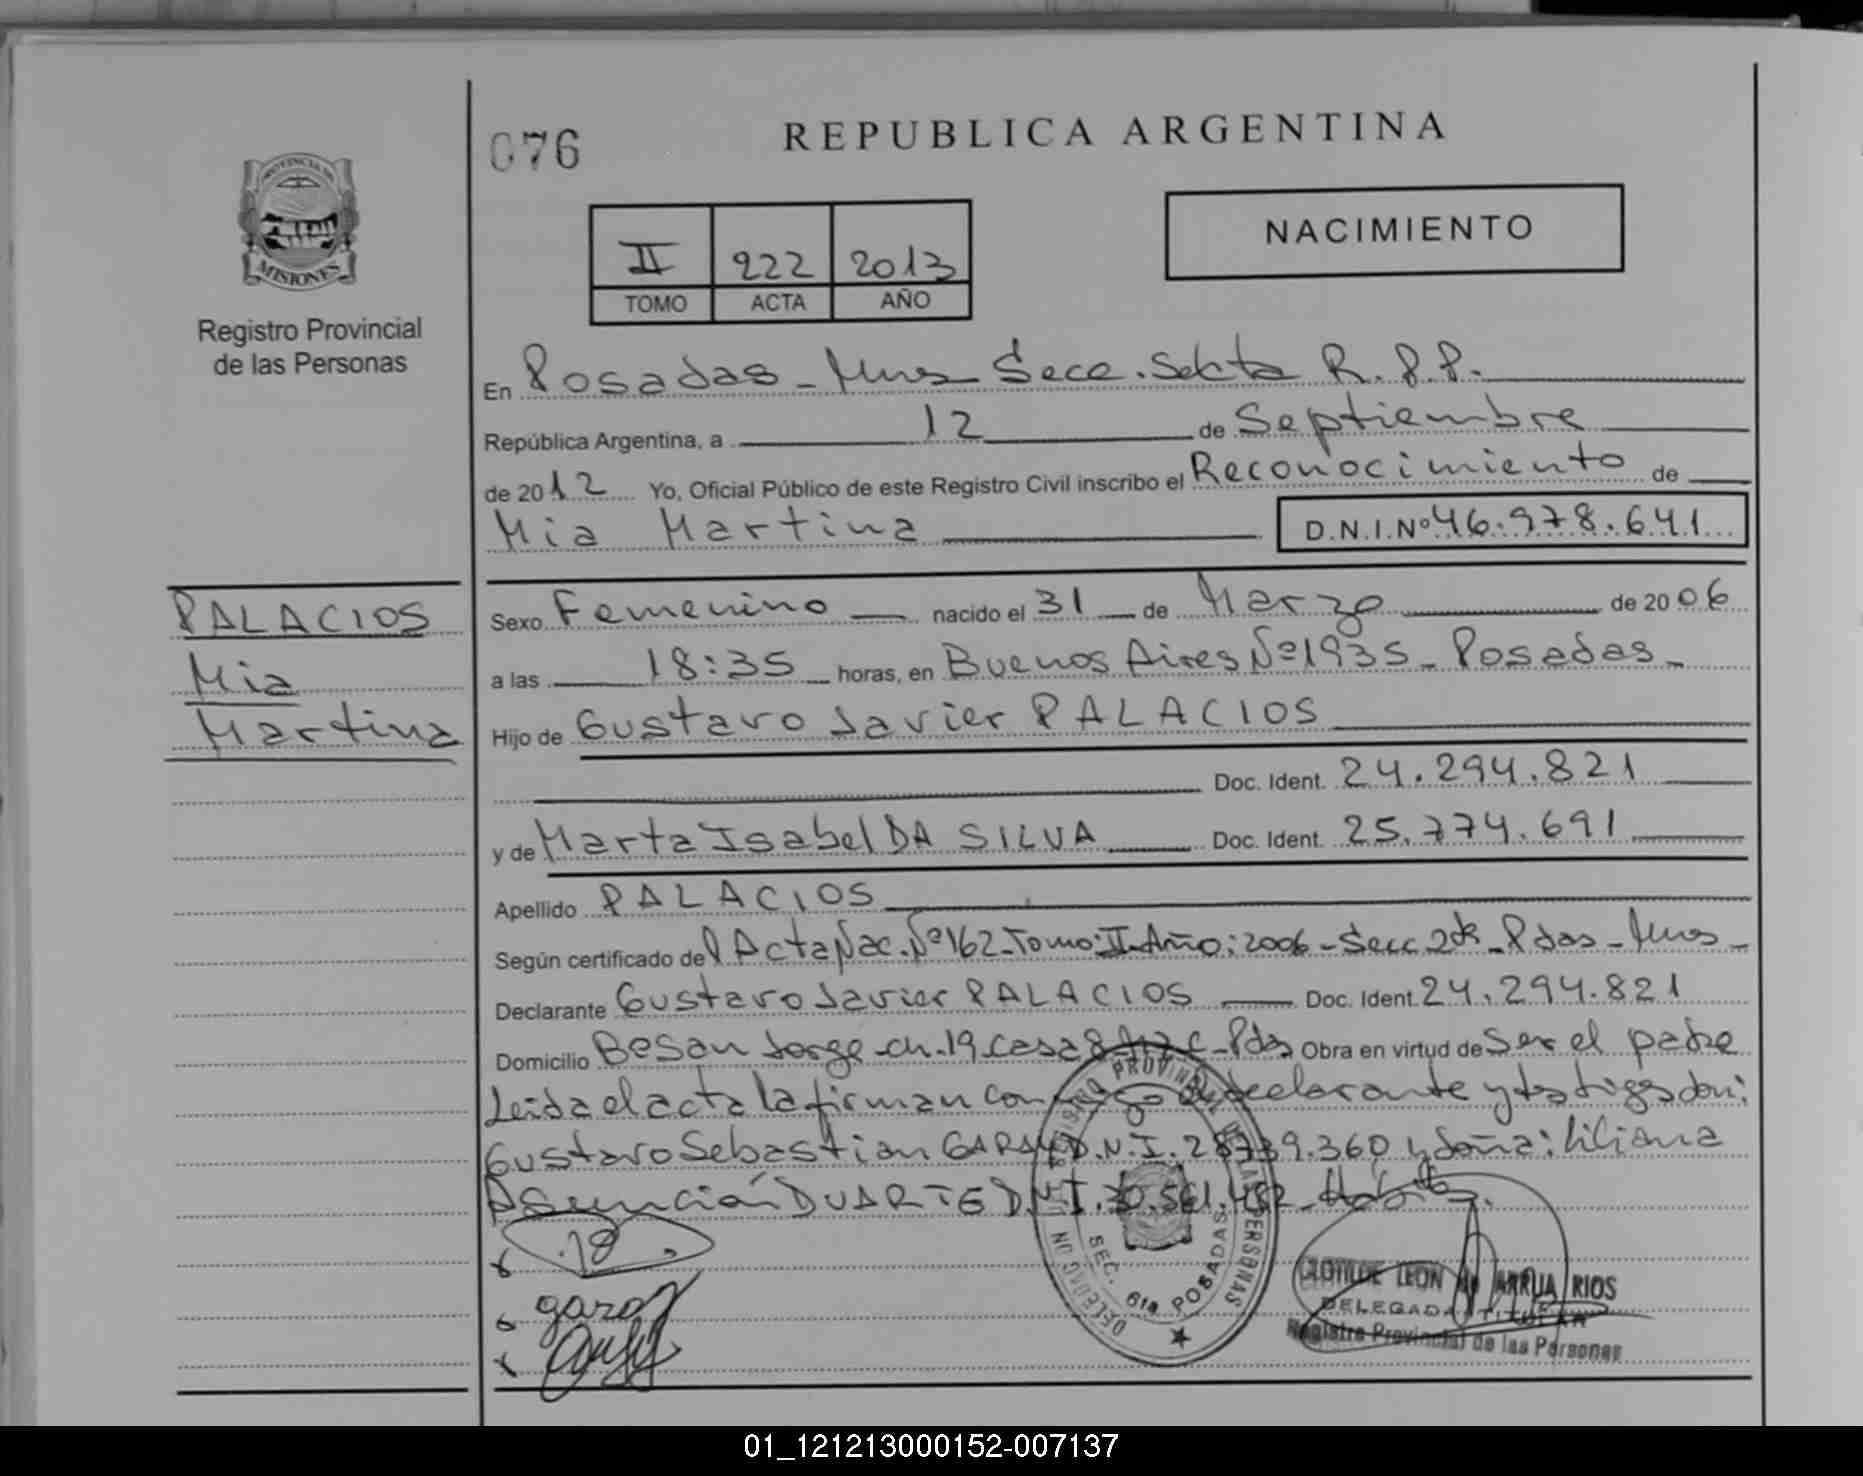 076
REPUBLICA ARGENTINA
PROVINCIA DE
MISIONES
Registro Provincial
de las Personas
II 222 2013
TOMO ACTA AÑO
NACIMIENTO
En Posadas - Mnes Secc. Sexta R.P.P.
República Argentina, a 12 de Septiembre
de 2012 Yo, Oficial Público de este Registro Civil inscribo el Reconocimiento de
Mia Martina D.N.I.Nº 46.978.641
PALACIOS
Mia
Martina
Sexo Femenino nacido el 31 de Marzo de 2006
a las 18:35 horas, en Buenos Aires Nº 1935 - Posadas -
Hijo de Gustavo Javier PALACIOS
Doc. Ident. 24.294.821
y de Marta Isabel DA SILVA Doc. Ident. 25.774.691
Apellido PALACIOS
Según certificado de Acta Nac. Nº 162 - Tomo: II - Año: 2006 - Secc 2da - Pdas - Mnes -
Declarante Gustavo Javier PALACIOS Doc. Ident. 24.294.821
Domicilio Besan Jorge - ch. 19 casa 8 - Pdas Obra en virtud de Ser el padre
Leida el acta la firman conmigo el declarante y testigos don:
Gustavo Sebastian GARAY D.N.I. 28.739.360 y doña: Liliana
Asunción DUARTE D.N.I. 30.561.482
REGISTRO PROVINCIAL DE LAS PERSONAS
SEC. 6ta POSADAS
CLOTILDE LEON de ARRUA RIOS
DELEGADA TITULAR
Registro Provincial de las Personas
garay
01_121213000152-007137